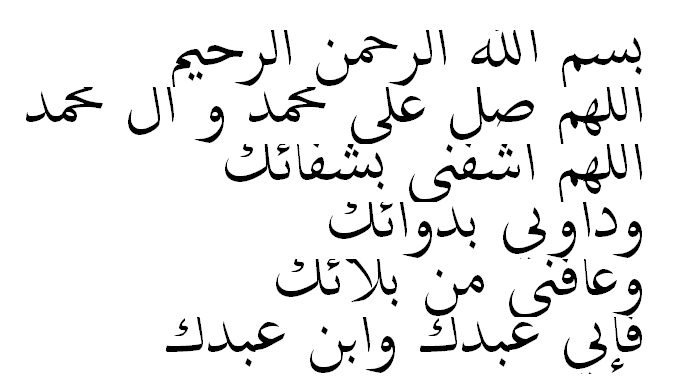 بسم الله الرحمن الرحيم
اللهم صل على محمد و ال محمد
اللهم اشفني بشفائك
وداوني بدوائك
وعافني من بلائك
فإني عبدك وابن عبدك